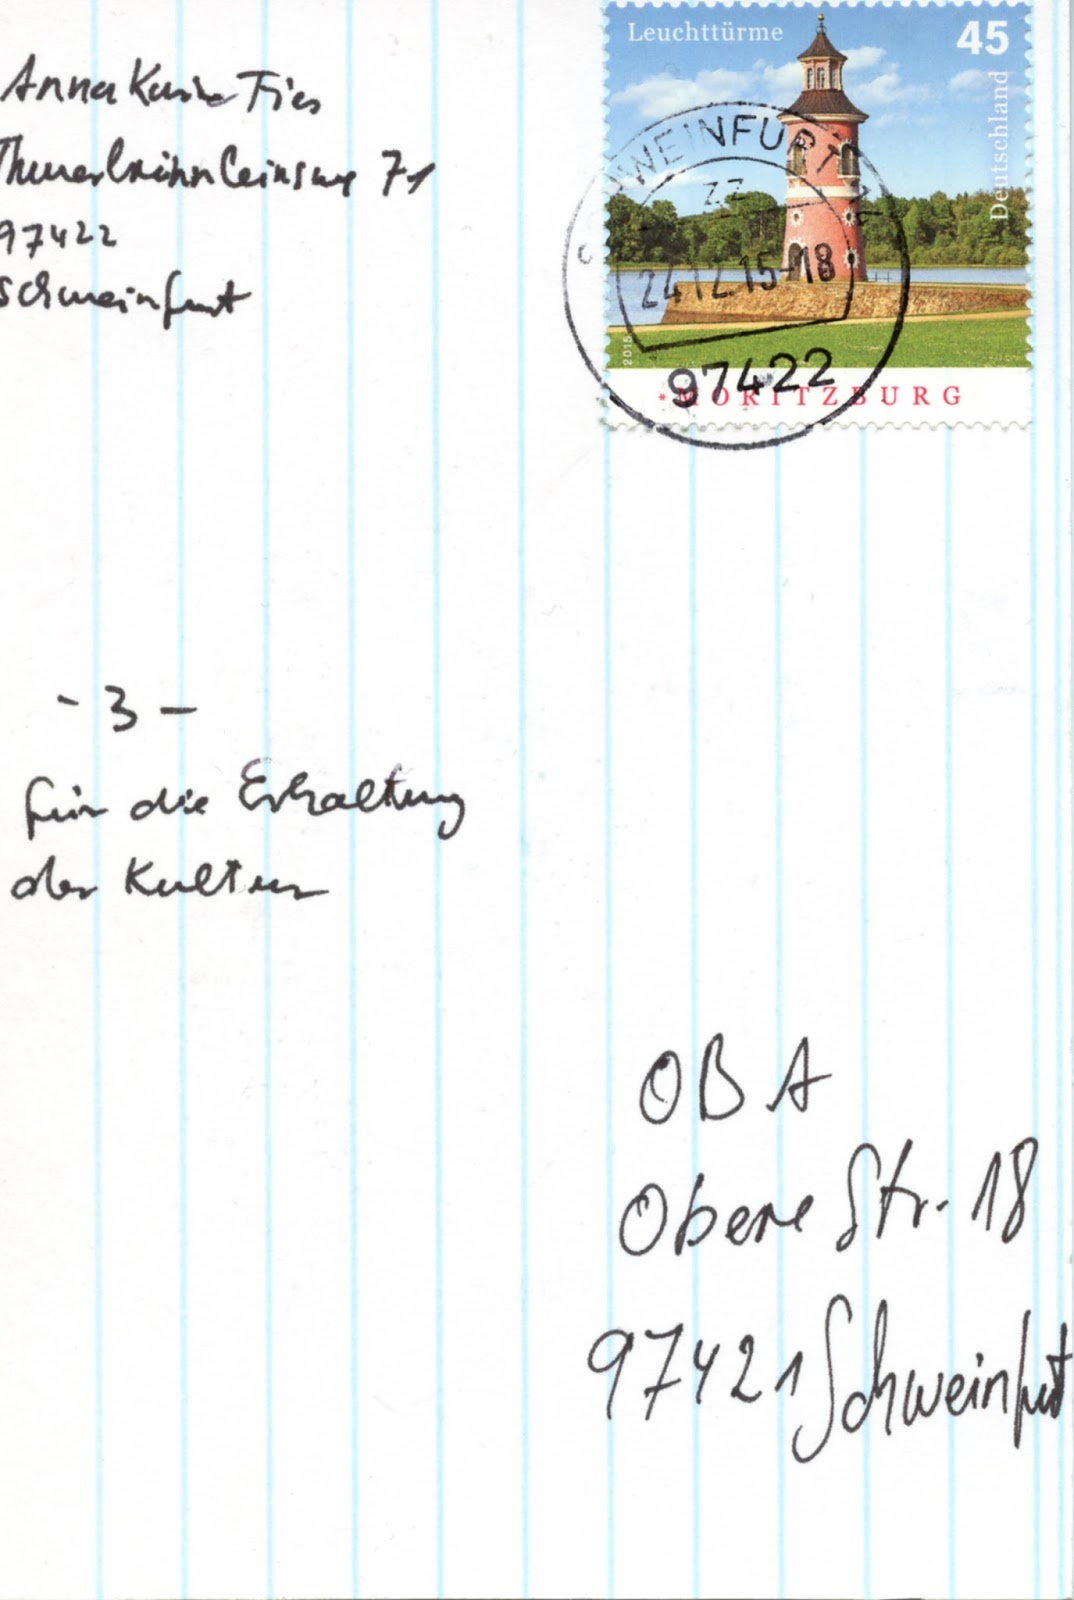 Anna Karin Fries
71
97422
Schweinfurt
Leuchttürme
45
Deutschland
SCHWEINFURT
ZZ
24.12.15-18
97422
2015
MORITZBURG
- 3 -
für die Erhaltung
der Kultur
OBA
Obere Str. 18
97421 Schweinfurt